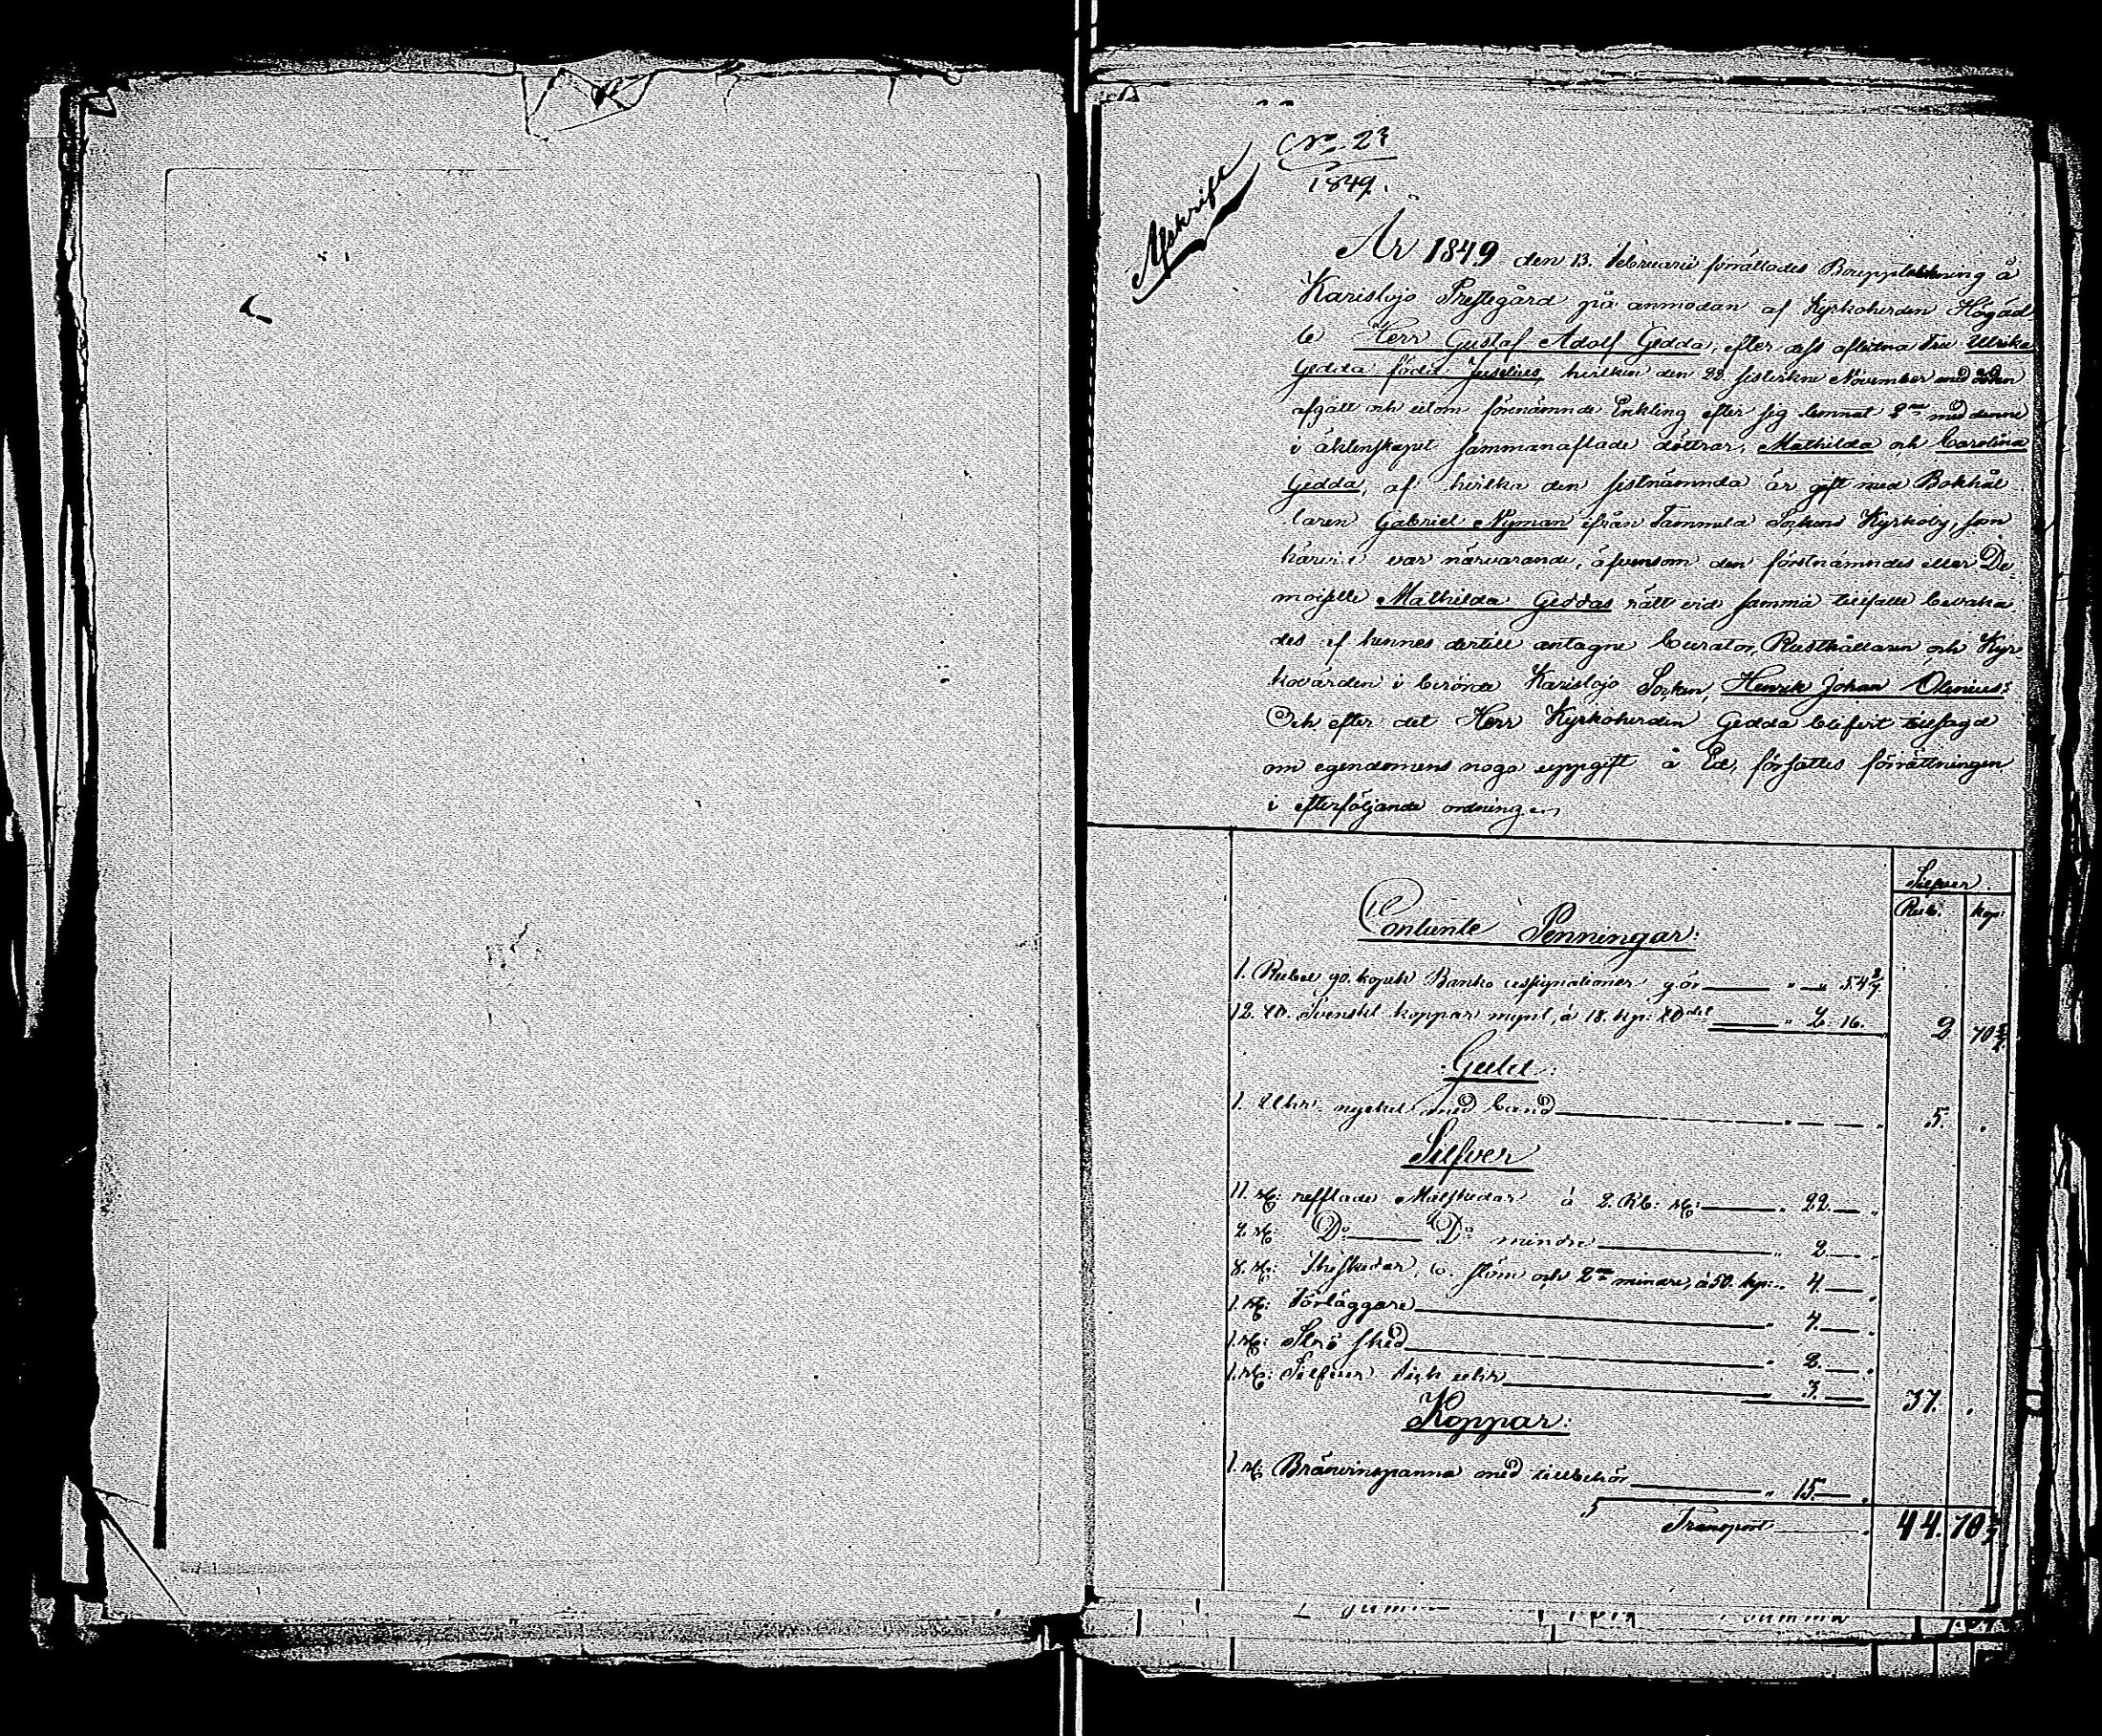 No 23
1849.
Afskrift
År 1849 den 13. Februarii förrättades Boupptekning å
Karislojo Prestegård på anmodan af Kyrkoherden Högäd
le Herr Gustaf Adolf Gedda, efter dess aflidna Fru Ulrika
Gedda född Juselius, hvilken den 28 sistlidne November med döden
afgått och utom förenämnde Enkling efter sig lemnat 2ne med denne
i äktenskapet sammanaflade döttrar, Mathilda och Carolina
Gedda, af hvilka den sistnämnda är gift med Bokhål
laren Gabriel Nyman ifrån Tammela Sockens Kyrkoby, som
härvid var närvarande, äfvensom den förstnämndes eller De
moiselle Mathilda Geddas rätt vid samma tillfälle bevaka
des af hennes dertill antagne Curator, Rusthållaren och Kyr
kovärden i berörde Karislojo Socken, Henrik Johan Olenius;
Och efter det Herr Kyrkoherden Gedda blifvit tillsagd
om egendomens noga uppgift å Ed, författes förrättningen
i efterföljande ordning
Silfver.
Rub. Kop:
Contante Penningar:
1. Rubel 90. kopek Banko assignationer gör — " — 54 2/7
12. ℔. Svenskt koppar mynt, á 18. kp: ℔det — " 2. 16. 2 70 2/7
Guld:
1. Uhr nyckel med band — " — " 5. "
Silfver
11. st: refflade Matskedar á 2. Rb: st: — " 22. — "
2 st: Do — Do mindre — " 2. — "
8. st: Theskedar, 6. större och 2ne mindre, á 50. kp: " 4. — "
1. st: Förläggare — " 4. — "
1. st: Strö sked — " 2. — "
1. st: Silfver fick uhr — " 3. — 37. "
Koppar:
1. st: Bränvinspanna med tillbehör — " 15. — "
Transport — " 44. 70 2/7